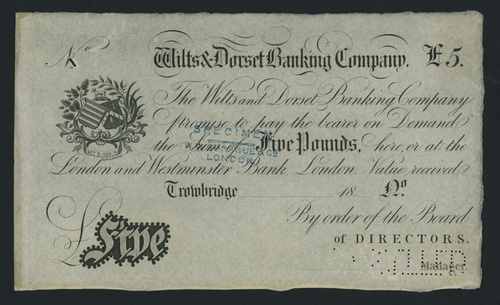 No
Wilts & Dorset Banking Company. £5.
The Wilts and Dorset Banking Company
promise to pay the bearer on Demand
the sum of Five Pounds, here, or at the
London and Westminster Bank, London. Value received
SPECIMEN
LONDON
Trowbridge 18 No
By order of the Board
of DIRECTORS.
£Five
Manager